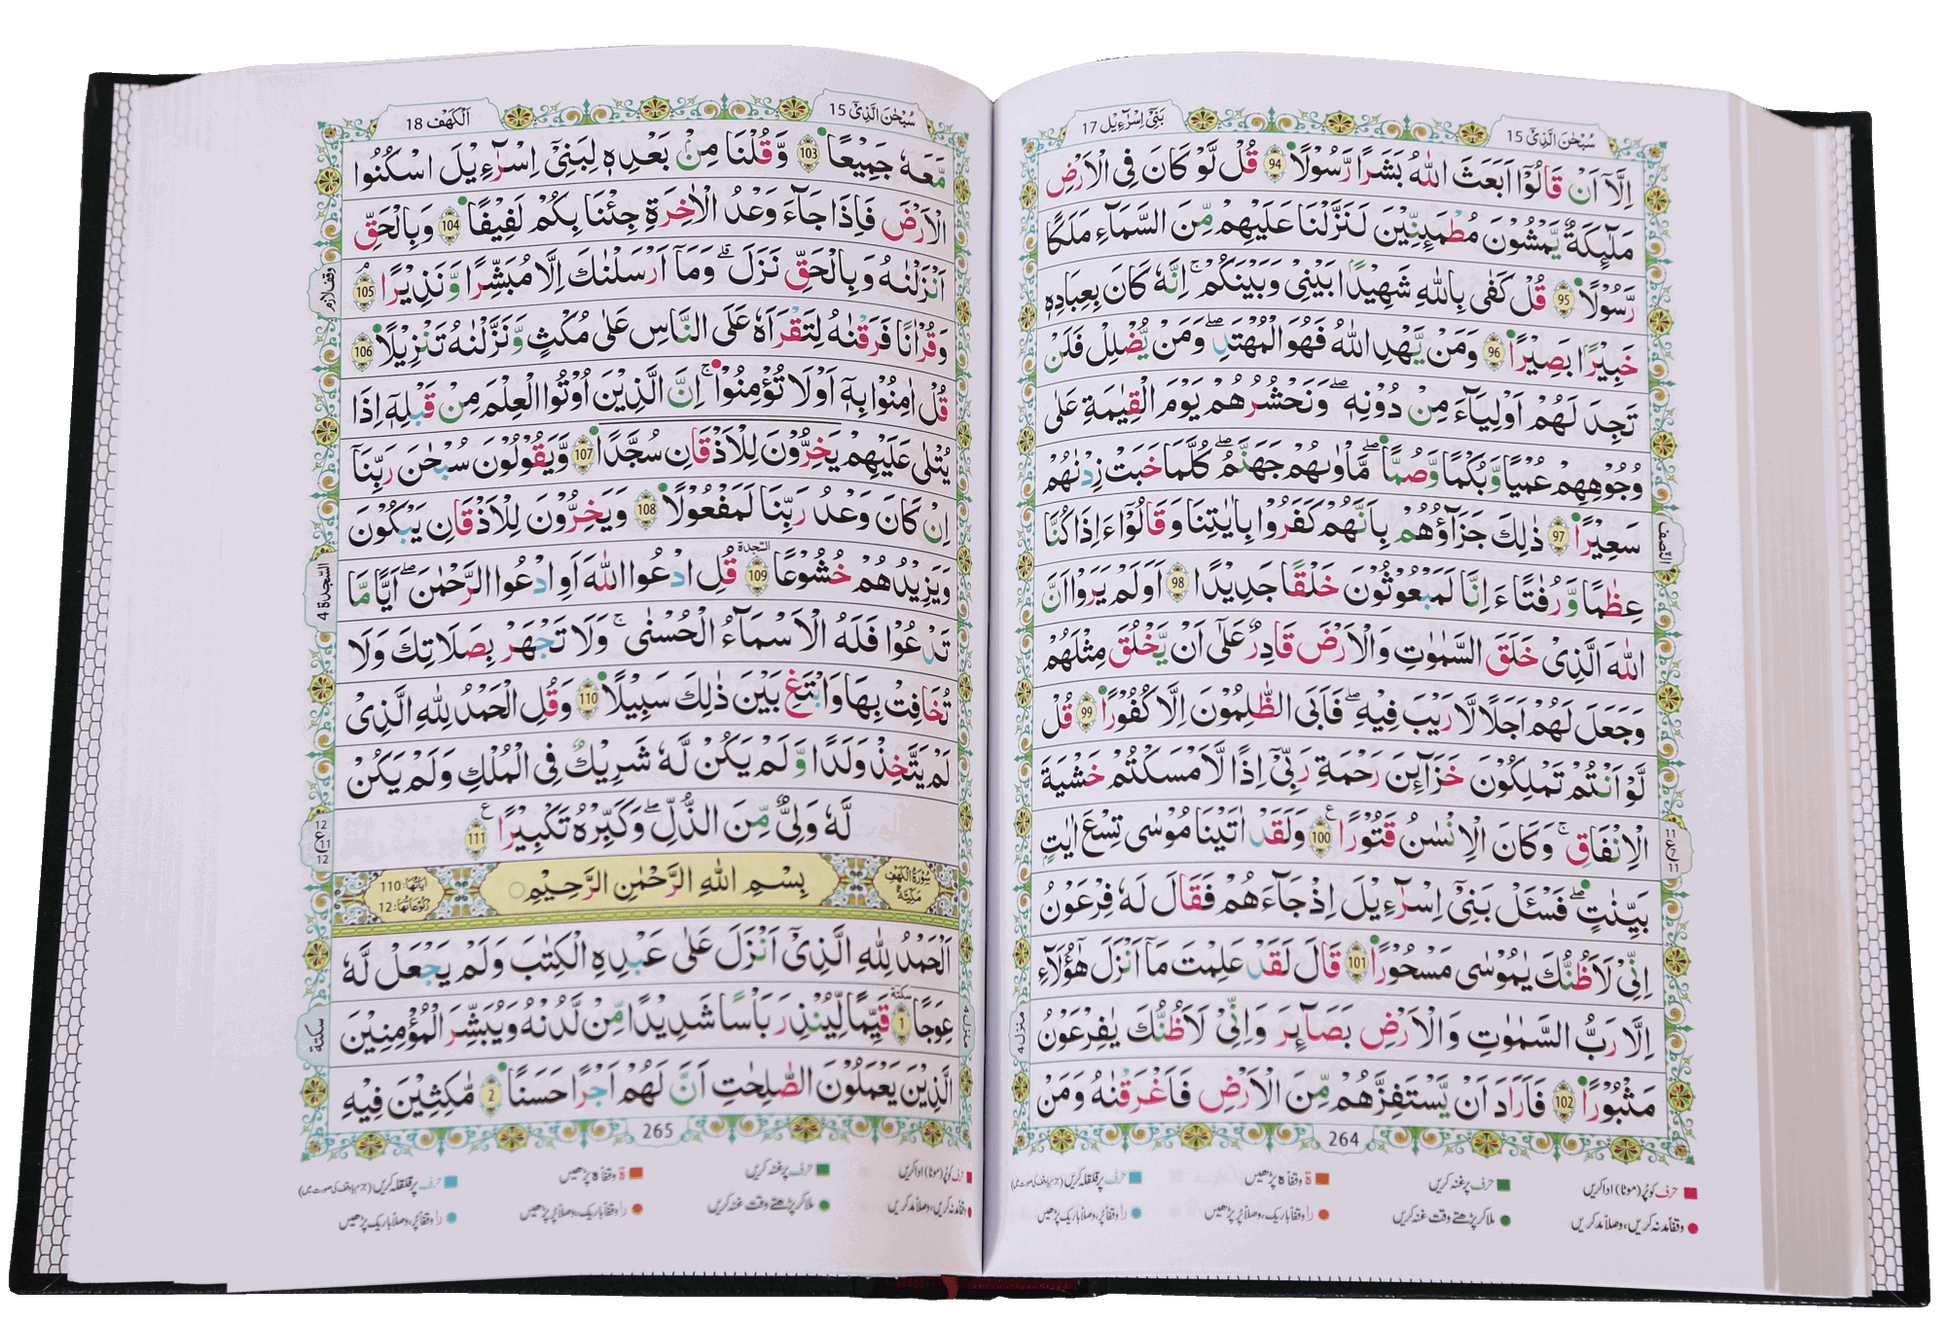 سُبْحٰنَ الَّذِىْٓ 15
بَنِىْٓ اِسْرَآءِيْل 17
اِلَّاۤ اَنْ قَالُوْۤا اَبَعَثَ اللّٰهُ بَشَرًا رَّسُوْلًا 94 قُلْ لَّوْ كَانَ فِى الْاَرْضِ
مَلٰٓىِٕكَةٌ يَّمْشُوْنَ مُطْمَىِٕنِّيْنَ لَنَزَّلْنَا عَلَيْهِمْ مِّنَ السَّمَآءِ مَلَكًا
رَّسُوْلًا 95 قُلْ كَفٰى بِاللّٰهِ شَهِيْدًۢا بَيْنِىْ وَبَيْنَكُمْ ۚ اِنَّهٗ كَانَ بِعِبَادِهٖ
خَبِيْرًۢا بَصِيْرًا 96 وَمَنْ يَّهْدِ اللّٰهُ فَهُوَ الْمُهْتَدِ ۖ وَمَنْ يُّضْلِلْ فَلَنْ
تَجِدَ لَهُمْ اَوْلِيَآءَ مِنْ دُوْنِهٖ ۖ وَنَحْشُرُهُمْ يَوْمَ الْقِيٰمَةِ عَلٰى
وُجُوْهِهِمْ عُمْيًا وَّبُكْمًا وَّصُمًّا ۖ مَاْوٰىهُمْ جَهَنَّمُ ۖ كُلَّمَا خَبَتْ زِدْنٰهُمْ
سَعِيْرًا 97 ذٰلِكَ جَزَآؤُهُمْ بِاَنَّهُمْ كَفَرُوْا بِاٰيٰتِنَا وَقَالُوْۤا ءَاِذَا كُنَّا
عِظٰمًا وَّرُفَاتًا ءَاِنَّا لَمَبْعُوْثُوْنَ خَلْقًا جَدِيْدًا 98 اَوَلَمْ يَرَوْا اَنَّ
اللّٰهَ الَّذِىْ خَلَقَ السَّمٰوٰتِ وَالْاَرْضَ قَادِرٌ عَلٰٓى اَنْ يَّخْلُقَ مِثْلَهُمْ
وَجَعَلَ لَهُمْ اَجَلًا لَّا رَيْبَ فِيْهِ ۖ فَاَبَى الظّٰلِمُوْنَ اِلَّا كُفُوْرًا 99 قُلْ
لَّوْ اَنْتُمْ تَمْلِكُوْنَ خَزَآىِٕنَ رَحْمَةِ رَبِّىْٓ اِذًا لَّاَمْسَكْتُمْ خَشْيَةَ
الْاِنْفَاقِ ۚ وَكَانَ الْاِنْسٰنُ قَتُوْرًا 100 وَلَقَدْ اٰتَيْنَا مُوْسٰى تِسْعَ اٰيٰتٍۭ
بَيِّنٰتٍ ۖ فَسْـَٔلْ بَنِىْٓ اِسْرَآءِيْلَ اِذْ جَآءَهُمْ فَقَالَ لَهٗ فِرْعَوْنُ
اِنِّىْ لَاَظُنُّكَ يٰمُوْسٰى مَسْحُوْرًا 101 قَالَ لَقَدْ عَلِمْتَ مَاۤ اَنْزَلَ هٰٓؤُلَآءِ
اِلَّا رَبُّ السَّمٰوٰتِ وَالْاَرْضِ بَصَآىِٕرَ وَاِنِّىْ لَاَظُنُّكَ يٰفِرْعَوْنُ
مَثْبُوْرًا 102 فَاَرَادَ اَنْ يَّسْتَفِزَّهُمْ مِّنَ الْاَرْضِ فَاَغْرَقْنٰهُ وَمَنْ
النّصف
11
ع 11
11
منزل 4
264
حرف کو پُر (موٹا) ادا کریں
حرف پر غنہ کریں
ة وقفاً ہ پڑھیں
حرف پر قلقلہ کریں
وقفاً مد نہ کریں، وصلاً مد کریں
ملا کر پڑھتے وقت غنہ کریں
را وقفاً باریک، وصلاً پُر پڑھیں
را وقفاً پُر، وصلاً باریک پڑھیں
سُبْحٰنَ الَّذِىْٓ 15
اَلْكَهْف 18
مَّعَهٗ جَمِيْعًا 103 وَّقُلْنَا مِنْۢ بَعْدِهٖ لِبَنِىْٓ اِسْرَآءِيْلَ اسْكُنُوا
الْاَرْضَ فَاِذَا جَآءَ وَعْدُ الْاٰخِرَةِ جِئْنَا بِكُمْ لَفِيْفًا 104 وَبِالْحَقِّ
اَنْزَلْنٰهُ وَبِالْحَقِّ نَزَلَ ؕ وَمَاۤ اَرْسَلْنٰكَ اِلَّا مُبَشِّرًا وَّنَذِيْرًا 105
وَقُرْاٰنًا فَرَقْنٰهُ لِتَقْرَاَهٗ عَلَى النَّاسِ عَلٰى مُكْثٍ وَّنَزَّلْنٰهُ تَنْزِيْلًا 106
قُلْ اٰمِنُوْا بِهٖٓ اَوْ لَا تُؤْمِنُوْا ۚ اِنَّ الَّذِيْنَ اُوْتُوا الْعِلْمَ مِنْ قَبْلِهٖٓ اِذَا
يُتْلٰى عَلَيْهِمْ يَخِرُّوْنَ لِلْاَذْقَانِ سُجَّدًا 107 وَّيَقُوْلُوْنَ سُبْحٰنَ رَبِّنَاۤ
اِنْ كَانَ وَعْدُ رَبِّنَا لَمَفْعُوْلًا 108 وَيَخِرُّوْنَ لِلْاَذْقَانِ يَبْكُوْنَ
وَيَزِيْدُهُمْ خُشُوْعًا 109 السّجدة قُلِ ادْعُوا اللّٰهَ اَوِ ادْعُوا الرَّحْمٰنَ ۖ اَيًّا مَّا
تَدْعُوْا فَلَهُ الْاَسْمَآءُ الْحُسْنٰى ۚ وَلَا تَجْهَرْ بِصَلَاتِكَ وَلَا
تُخَافِتْ بِهَا وَابْتَغِ بَيْنَ ذٰلِكَ سَبِيْلًا 110 وَقُلِ الْحَمْدُ لِلّٰهِ الَّذِىْ
لَمْ يَتَّخِذْ وَلَدًا وَّلَمْ يَكُنْ لَّهٗ شَرِيْكٌ فِى الْمُلْكِ وَلَمْ يَكُنْ
لَّهٗ وَلِىٌّ مِّنَ الذُّلِّ ۖ وَكَبِّرْهُ تَكْبِيْرًا 111
سُوْرَةُ الْكَهْفِ مَكِّيَّةٌ
بِسْمِ اللّٰهِ الرَّحْمٰنِ الرَّحِيْمِ
اٰيَاتُهَا: 110
رُكُوْعَاتُهَا: 12
اَلْحَمْدُ لِلّٰهِ الَّذِىْٓ اَنْزَلَ عَلٰى عَبْدِهِ الْكِتٰبَ وَلَمْ يَجْعَلْ لَّهٗ
عِوَجًا 1 سكتة قَيِّمًا لِّيُنْذِرَ بَاْسًا شَدِيْدًا مِّنْ لَّدُنْهُ وَيُبَشِّرَ الْمُؤْمِنِيْنَ
الَّذِيْنَ يَعْمَلُوْنَ الصّٰلِحٰتِ اَنَّ لَهُمْ اَجْرًا حَسَنًا 2 مَّاكِثِيْنَ فِيْهِ
وقف لازم
السّجدة 4
12
ع 11
12
سكتة
منزل 4
265
حرف کو پُر (موٹا) ادا کریں
حرف پر غنہ کریں
ة وقفاً ہ پڑھیں
حرف پر قلقلہ کریں
وقفاً مد نہ کریں، وصلاً مد کریں
ملا کر پڑھتے وقت غنہ کریں
را وقفاً باریک، وصلاً پُر پڑھیں
را وقفاً پُر، وصلاً باریک پڑھیں